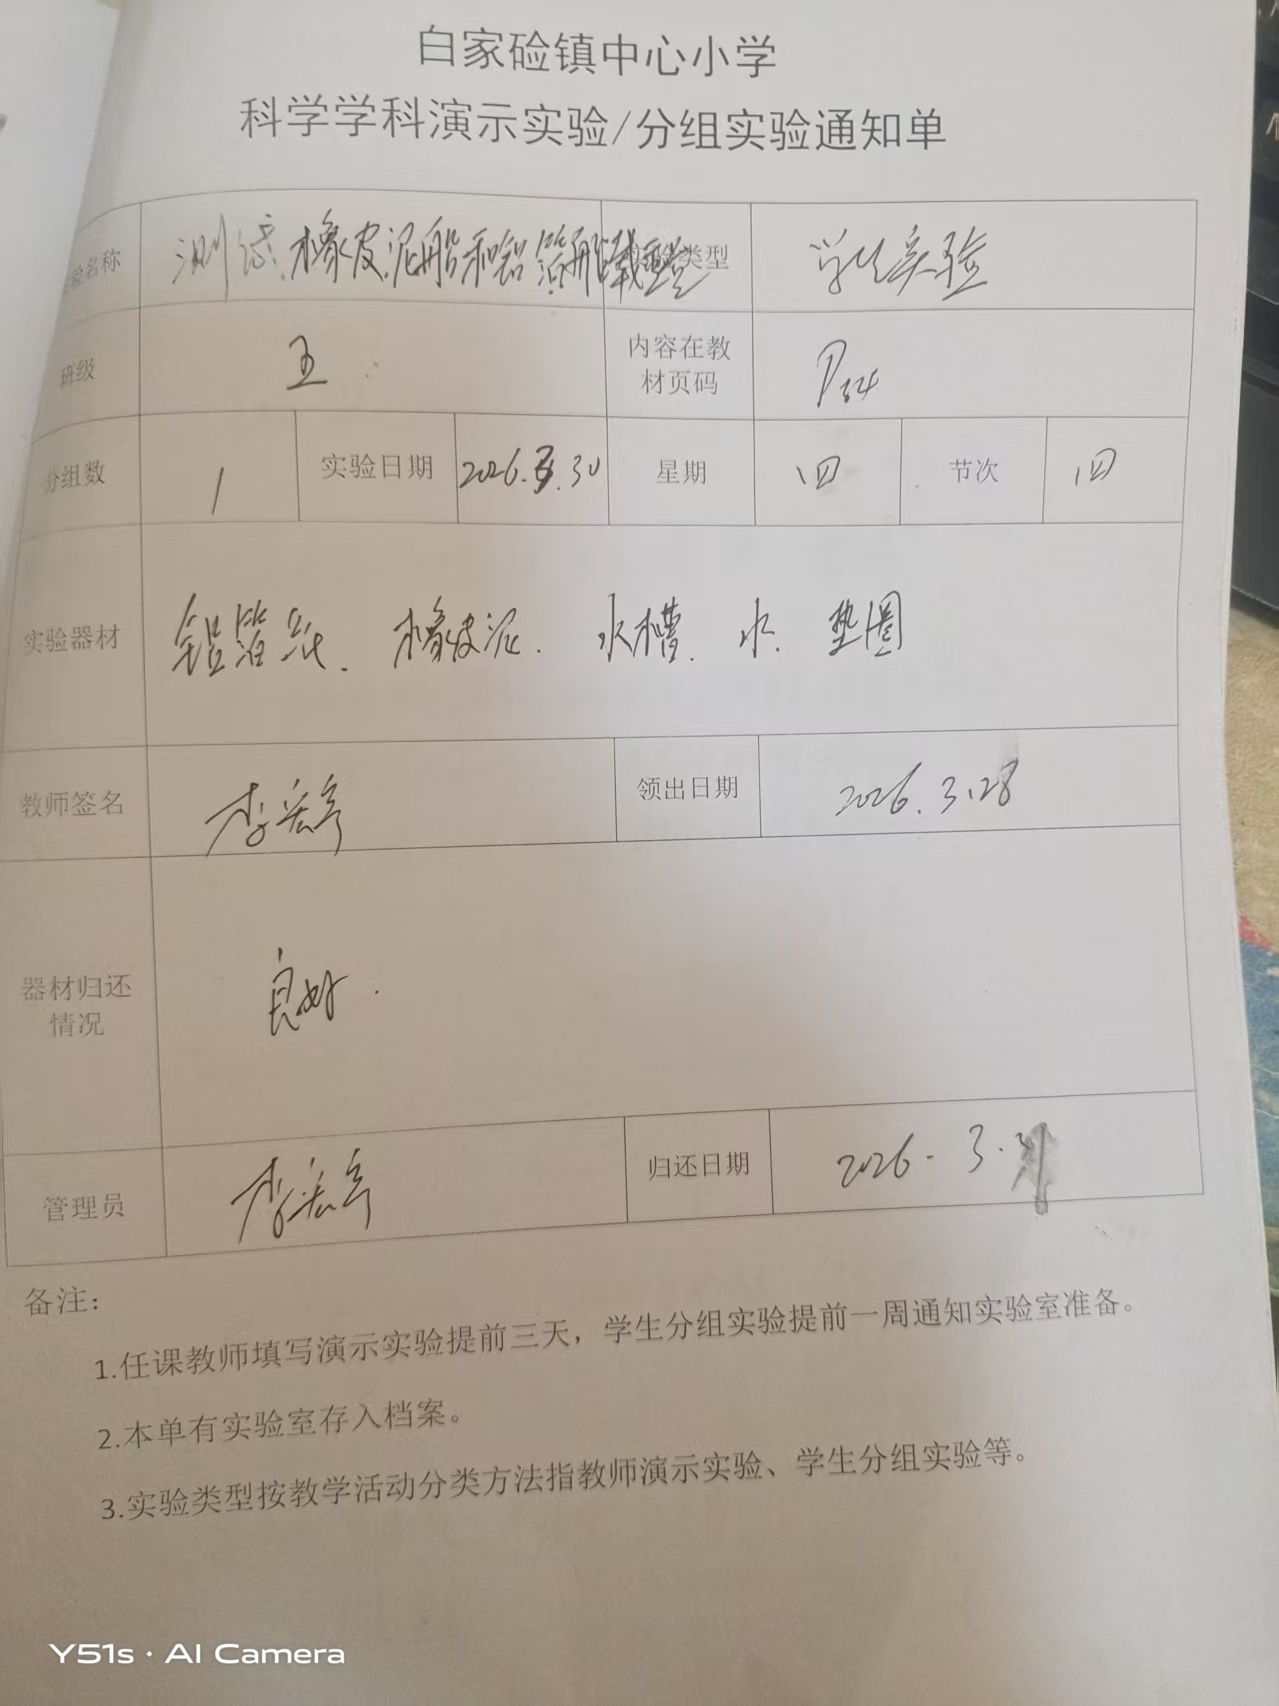 白家硷镇中心小学
科学学科演示实验/分组实验通知单
验名称 测试橡皮泥船和铝箔船载重 实验类型 学生实验
班级 五 内容在教材页码 P34
分组数 1 实验日期 2026.3.30 星期 四 节次 四
实验器材 铝箔纸、橡皮泥、水槽、水、垫圈
教师签名 领出日期 2026.3.28
器材归还情况 良好.
管理员 归还日期 2026.3.31
备注：
1.任课教师填写演示实验提前三天，学生分组实验提前一周通知实验室准备。
2.本单有实验室存入档案。
3.实验类型按教学活动分类方法指教师演示实验、学生分组实验等。
Y51s · AI Camera